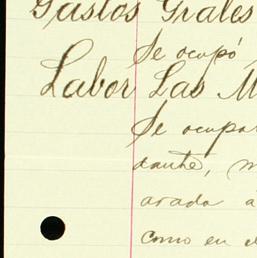 Gastos Grales
Se ocupó
Labor Las M
Se ocupar
dante, m
arada a
como en el